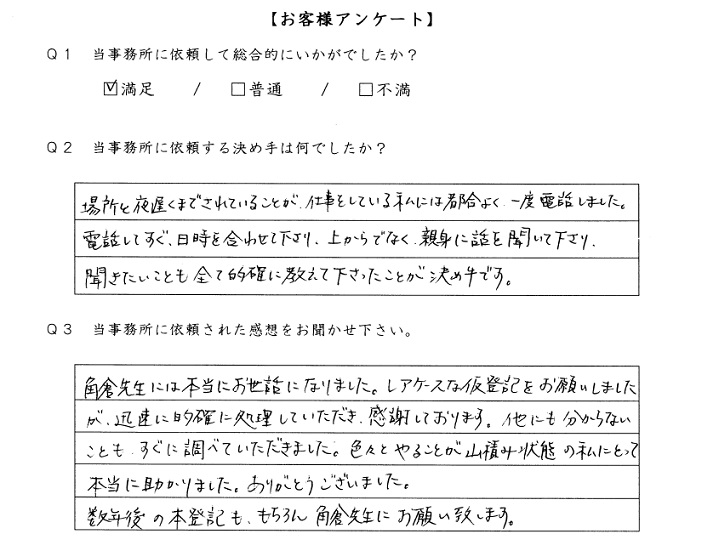 【お客様アンケート】
Q1　当事務所に依頼して総合的にいかがでしたか？
☑満足　/　□普通　/　□不満
Q2　当事務所に依頼する決め手は何でしたか？
場所と夜遅くまでされていることが、仕事をしている私には都合よく、一度電話しました。
電話してすぐ、日時を合わせて下さり、上からでなく、親身に話を聞いて下さり、
聞きたいことも全て的確に教えて下さったことが決め手です。
Q3　当事務所に依頼された感想をお聞かせ下さい。
角倉先生には本当にお世話になりました。レアケースな仮登記をお願いしました
が、迅速に的確に処理していただき、感謝しております。他にも分からない
ことも、すぐに調べていただきました。色々とやることが山積み状態の私にとって
本当に助かりました。ありがとうございました。
数年後の本登記も、もちろん角倉先生にお願い致します。